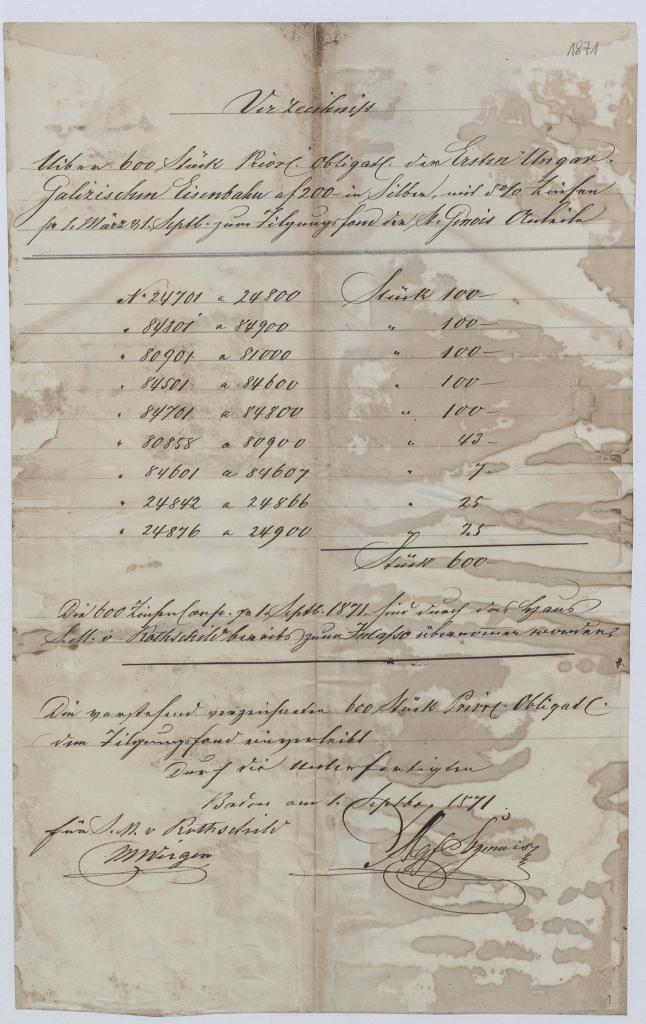 1871
Verzeichniss
Uiber 600 Stück Priort. Obligatt. der Ersten Ungar.
Galizischen Eisenbahn a f 200 – in Silber, mit 5% Zinsen
pr 1. März & 1. Septb. zum Tilgungsfond der St. Genois Anleihe
No 24701 a 24800 Stück 100 –
" 84801 a 84900 " 100 –
" 80901 a 81000 " 100 –
" 84501 a 84600 " 100 –
" 84701 a 84800 " 100 –
" 80858 a 80900 " 43 –
" 84601 a 84607 " 7 –
" 24842 a 24866 " 25
" 24876 a 24900 " 25
Stück 600 –
Die 600 Zinsen Coup. pr 1. Septb. 1871 sind durch das Haus
S. M. v Rothschild bereits zum Incasso übernomen worden.
Die vorstehend verzeichneten 600 Stück Priort. Obligatt.
dem Tilgungsfond einverleibt
Durch die Unterfertigten
Baden am 1. Septber 1871.
für S. M. v Rothschild
1